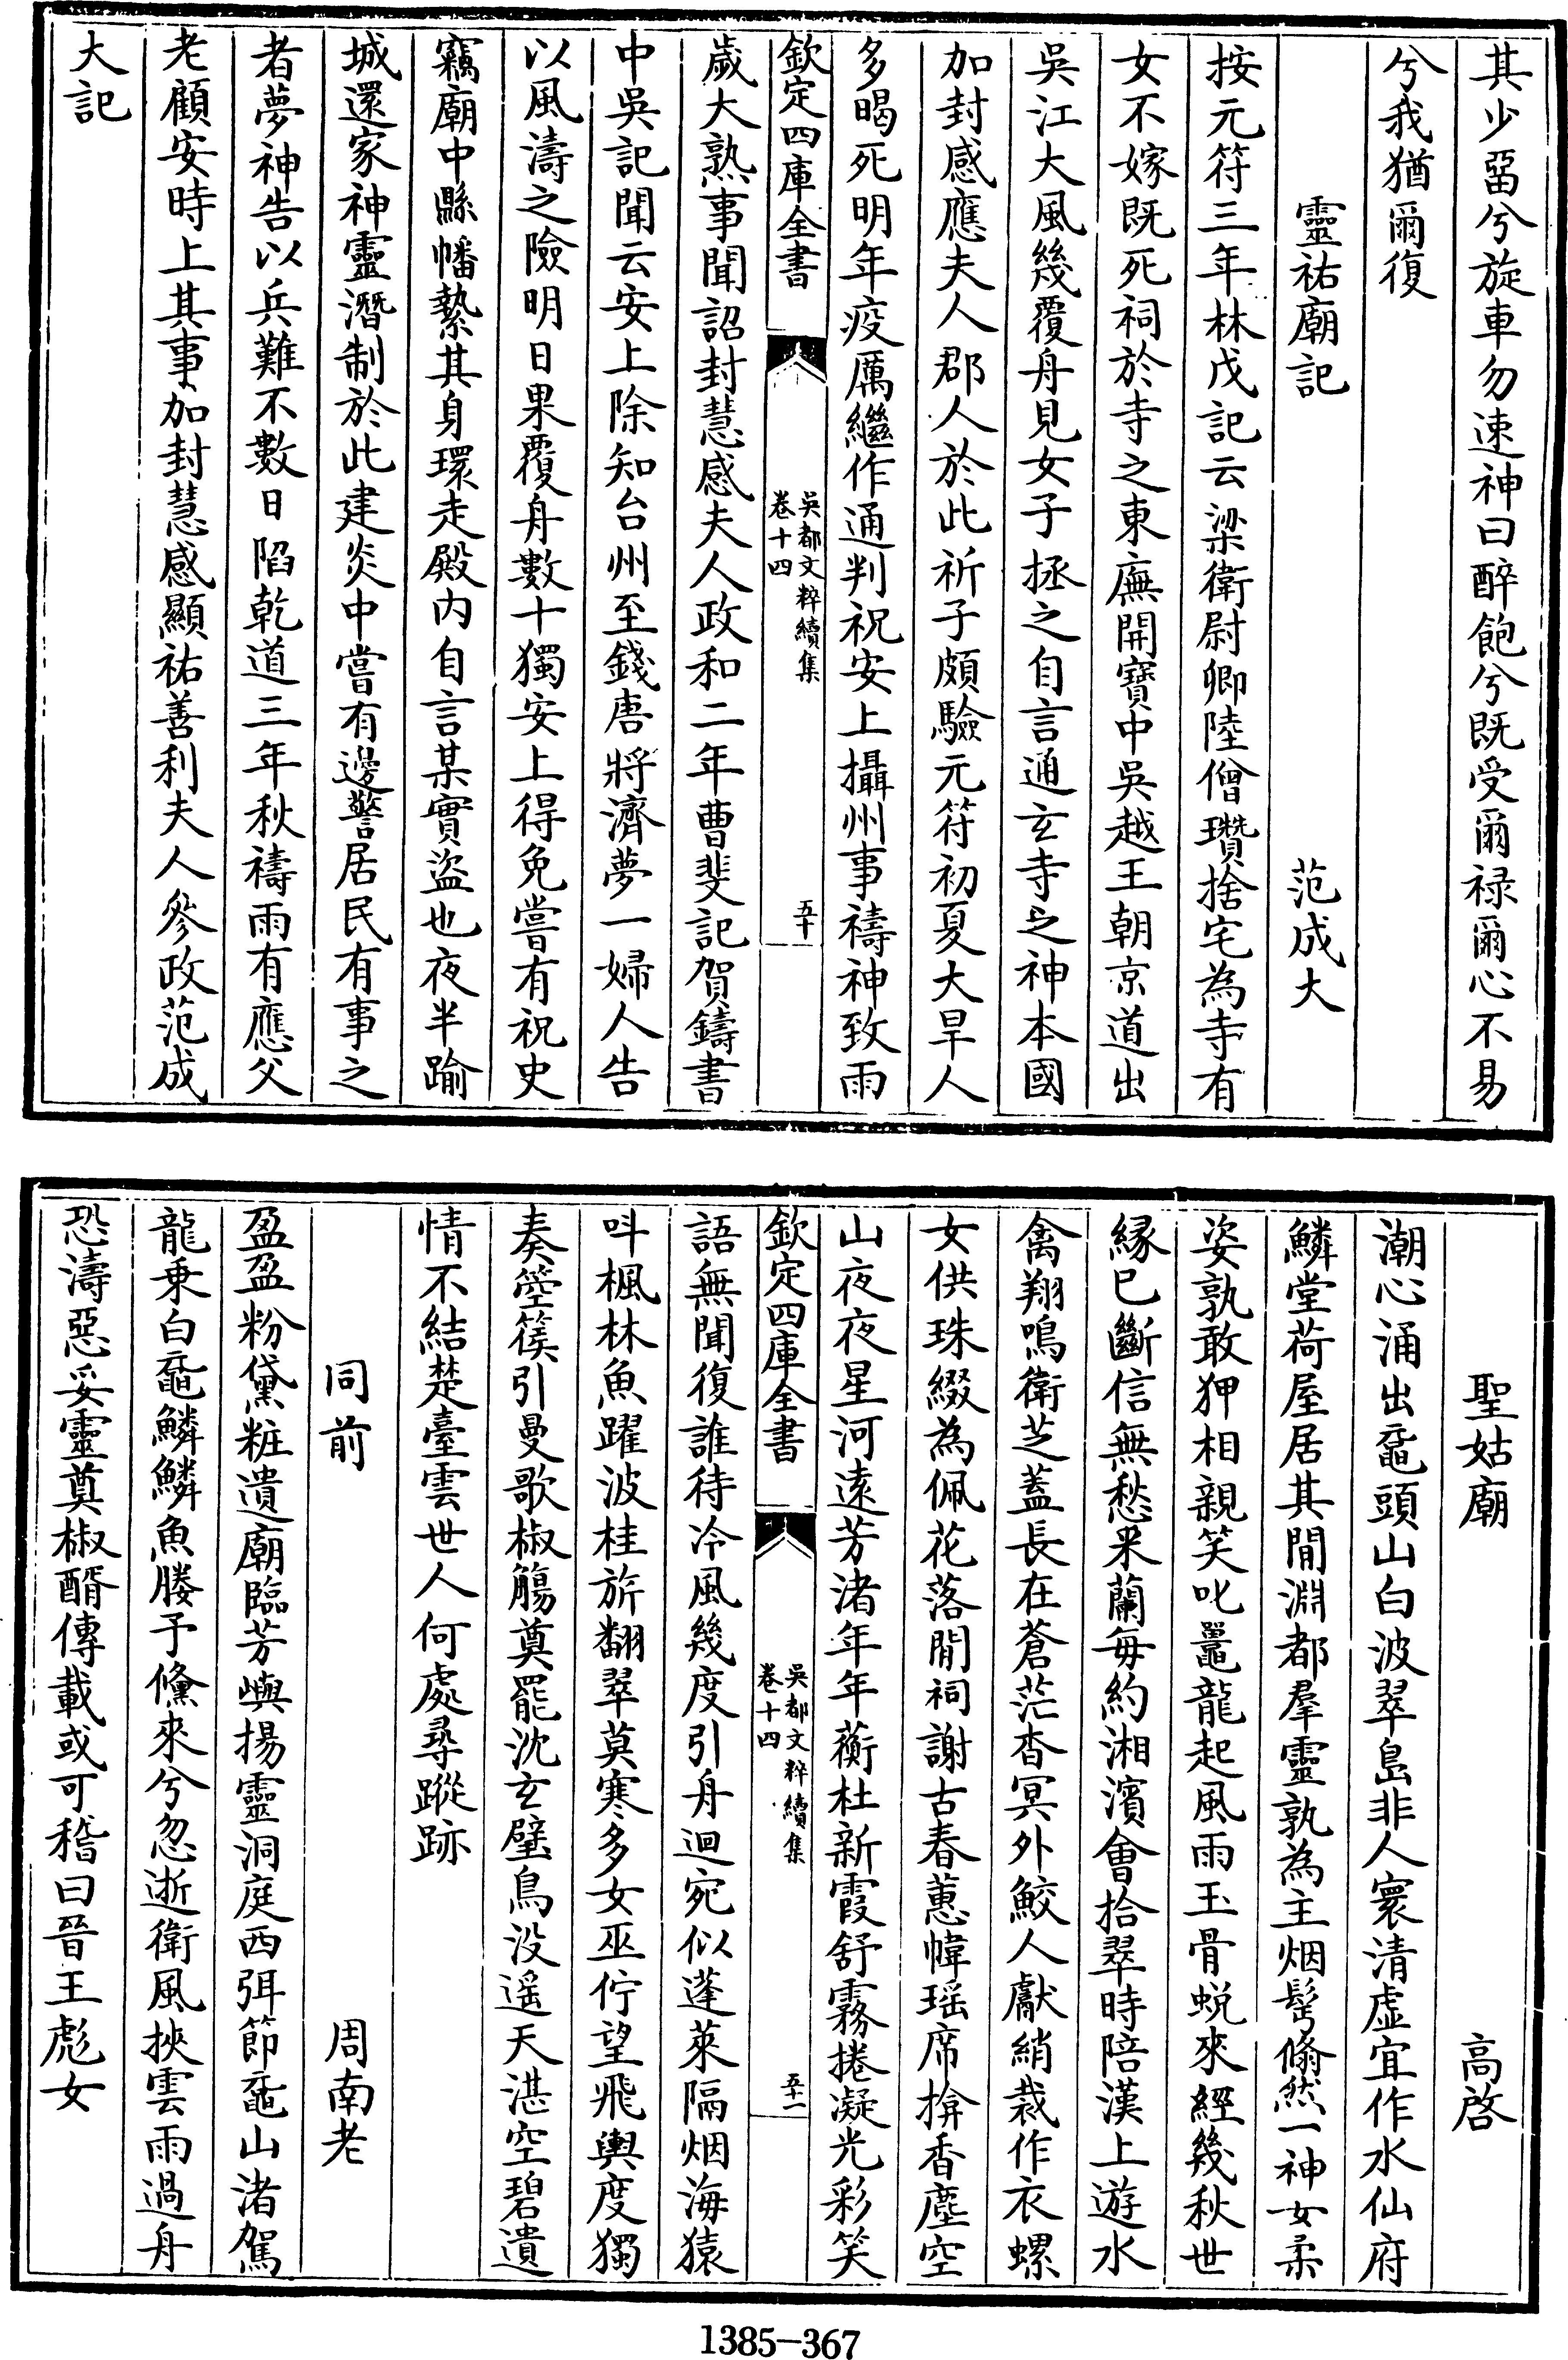 其少畱兮旋車勿速神曰醉飽兮既受爾祿爾心不易
兮我猶爾復
靈祐廟記 范成大
按元符三年林戊記云梁衛尉卿陸僧瓚捨宅為寺有
女不嫁既死祠於寺之東廡開寶中吳越王朝京道出
吳江大風幾覆舟見女子拯之自言通玄寺之神本國
加封感應夫人郡人於此祈子頗驗元符初夏大旱人
多暍死明年疫厲繼作通判祝安上攝州事禱神致雨
欽定四庫全書 吳都文粹續集 卷十四 五十
歲大熟事聞詔封慧感夫人政和二年曹斐記賀鑄書
中吳記聞云安上除知台州至錢唐將濟夢一婦人告
以風濤之險明日果覆舟數十獨安上得免嘗有祝史
竊廟中縣幡縶其身環走殿内自言某實盜也夜半踰
城還家神靈潛制於此建炎中嘗有邊警居民有事之
者夢神告以兵難不數日陷乾道三年秋禱雨有應父
老顧安時上其事加封慧感顯祐善利夫人參政范成
大記
聖姑廟 高啓
潮心涌出黿頭山白波翠島非人寰清虛宜作水仙府
鱗堂荷屋居其間淵都羣靈孰為主烟髩翛然一神女柔
姿孰敢狎相親笑叱鼉龍起風雨玉骨蛻來經幾秋世
緣已斷信無愁采蘭每約湘濱會拾翠時陪漢上遊水
禽翔鳴衛芝蓋長在蒼茫杳冥外鮫人獻綃裁作衣螺
女供珠綴為佩花落閒祠謝古春蕙幃瑤席揜香塵空
山夜夜星河遠芳渚年年蘅杜新霞舒霧捲凝光彩笑
欽定四庫全書 吳都文粹續集 卷十四 五十一
語無聞復誰待冷風幾度引舟迴宛似蓬萊隔烟海猿
呌楓林魚躍波桂旂翻翠莫寒多女巫佇望飛輿度獨
奏箜篌引曼歌椒觴奠罷沈玄璧鳥没遥天湛空碧遺
情不結楚臺雲世人何處尋蹤跡
同前 周南老
盈盈粉黛粧遺廟臨芳嶼揚靈洞庭西弭節黿山渚駕
龍乘白黿鱗鱗魚媵予儵來兮忽逝衛風挾雲雨過舟
恐濤惡妥靈奠椒醑傳載或可稽曰晉王彪女
1385-367